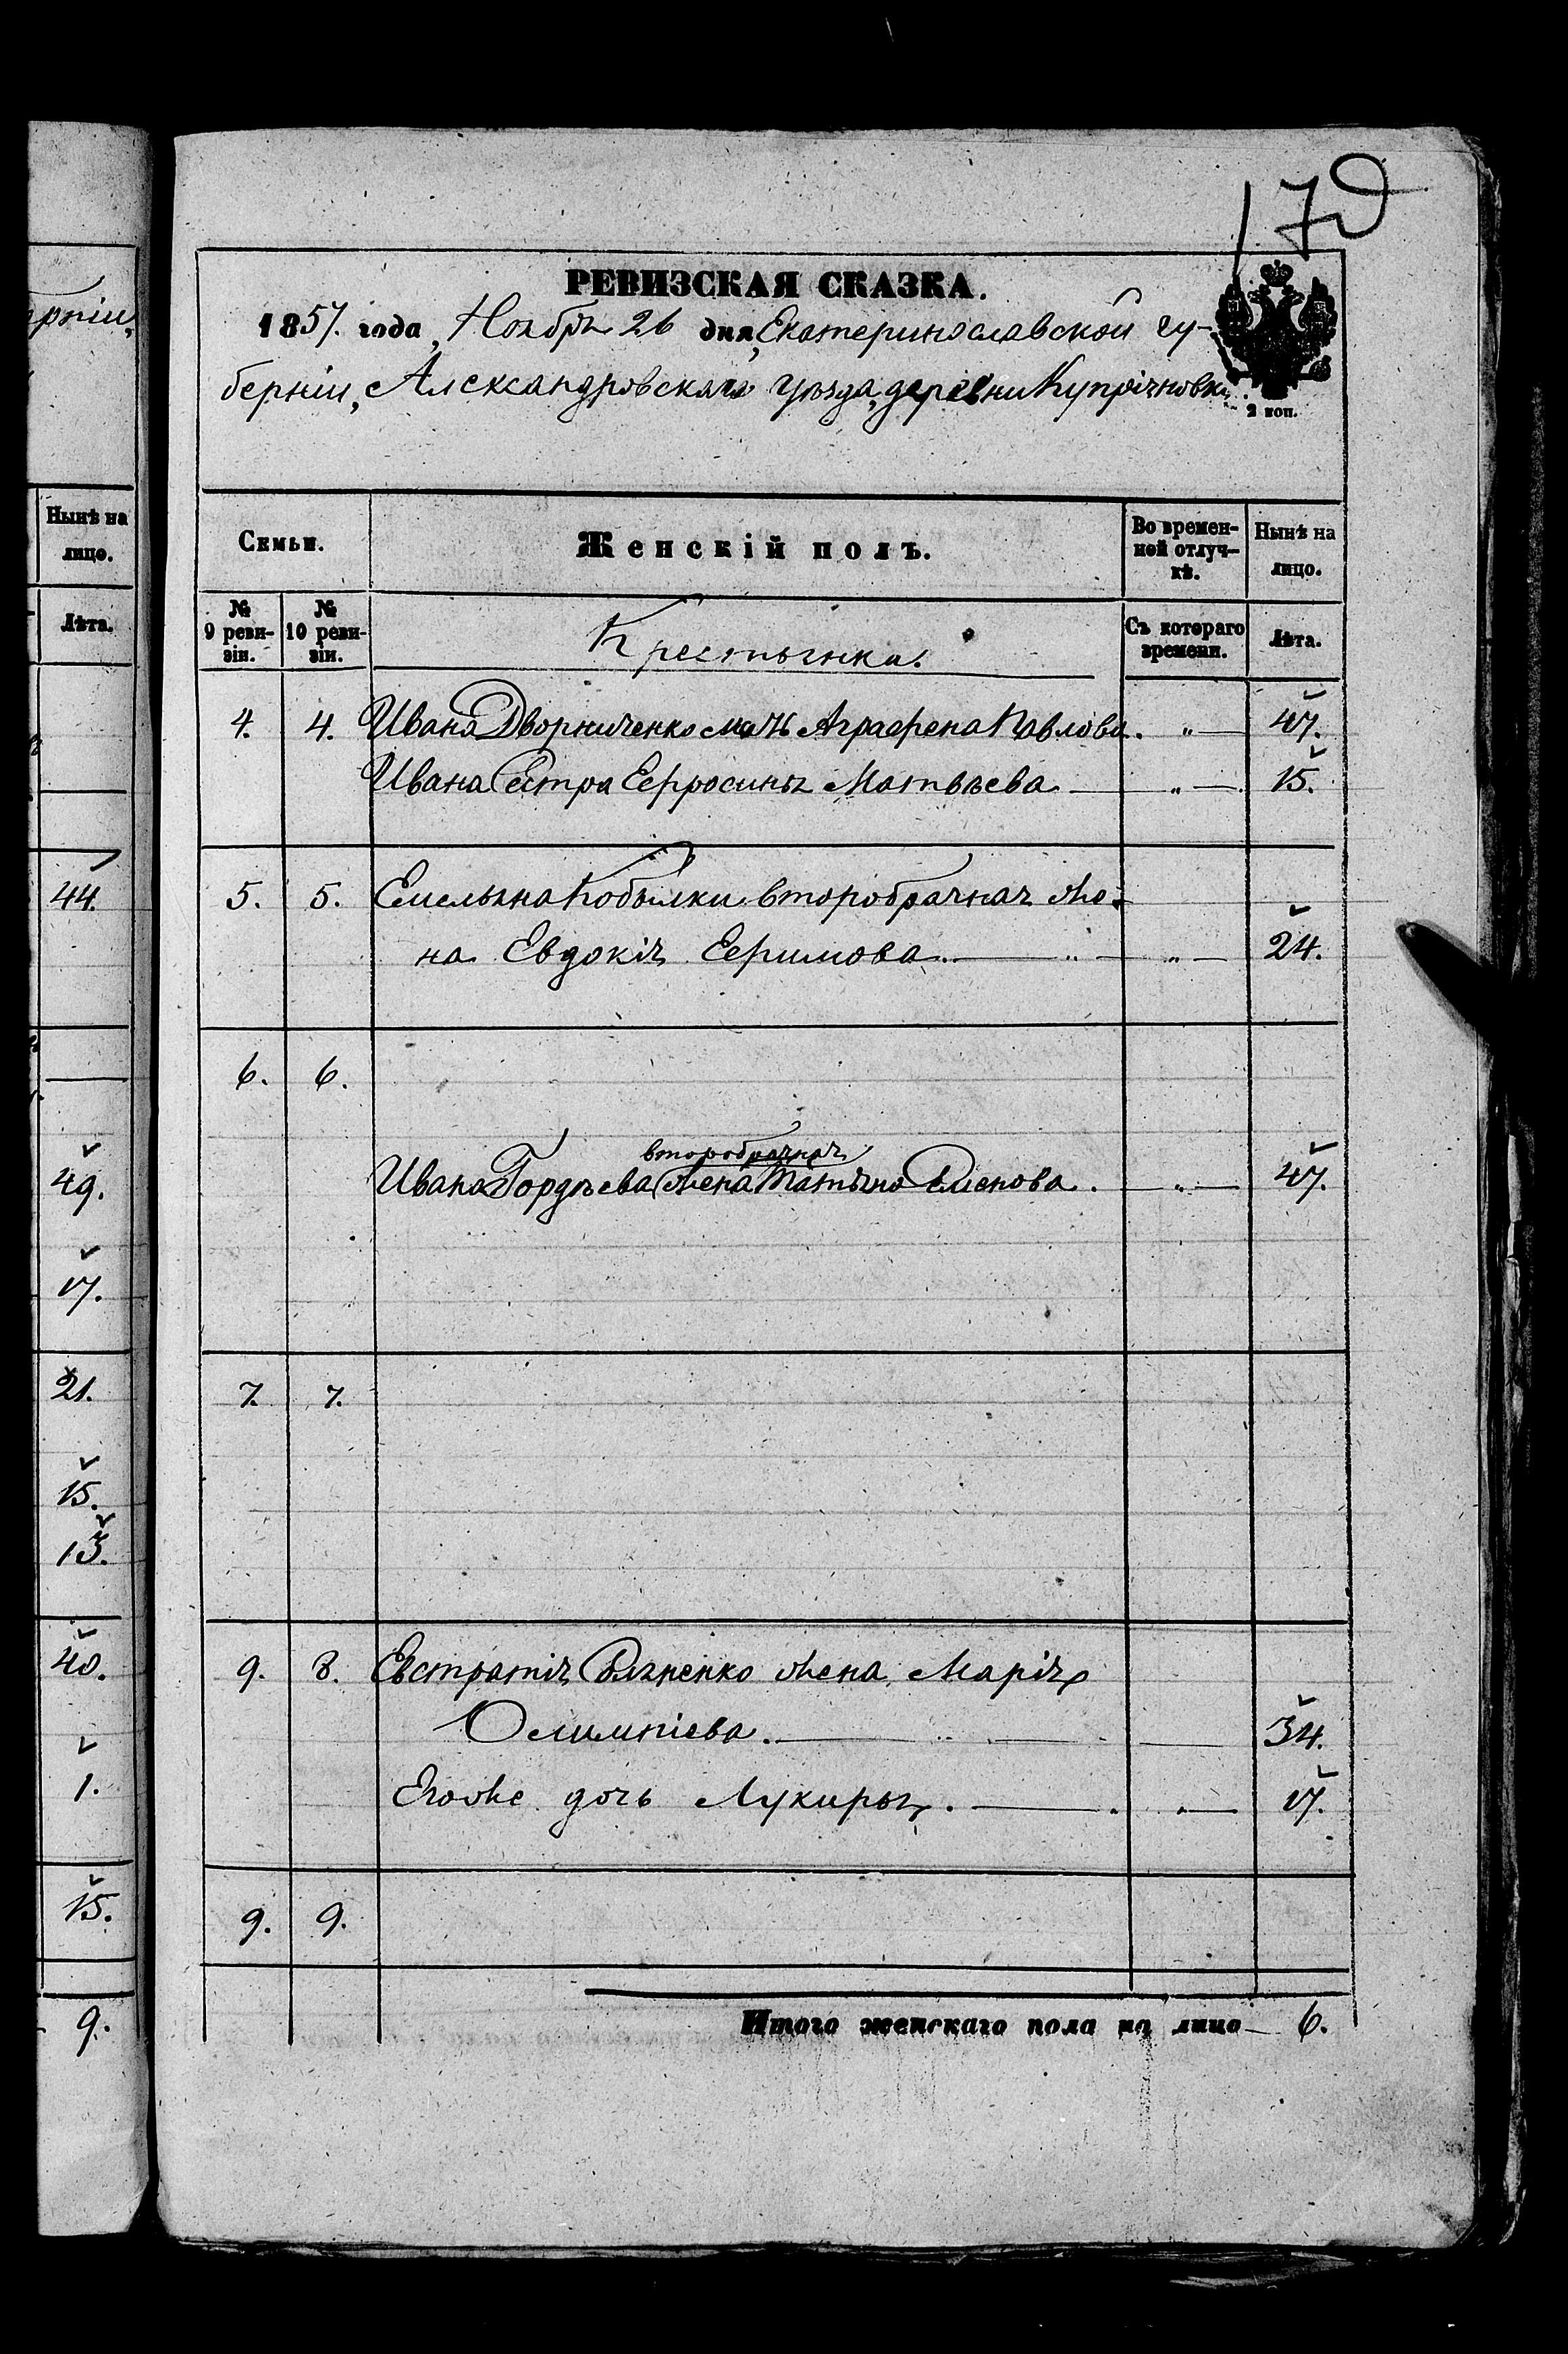 170
РЕВИЗСКАЯ СКАЗКА.
1857. года, Ноября 26 дня, Екатеринославской гу-
берніи, Александровскаго уѣзда, деревни Купріяновки.
2 коп.
Семьи. Женскій полъ. Во времен- Нынѣ на
ной отлуч- лицо.
кѣ.
№ № Съ котораго Лѣта.
9 реви- 10 реви- времени.
зіи. зіи.
Крестьянка.
4. 4. Ивана Дворниченко мать Аграфена Павлова. „ 47.
Ивана Сестра Ефросинья Матвѣева „ 15.
5. 5. Емельяна Кобылки второбрачная же-
на Евдокія Ефимова. „ „ 24.
6. 6.
второбрачная
Ивана Гордѣева жена Татьяна Семенова. „ 47.
7. 7.
9. 8. Евстратія жена Марія
Олимпіева. 34.
Егоже дочь Лукирья. „ 17.
9. 9.
Итого женскаго пола на лицо 6.
рніи,
Нынѣ на
лицо.
Лѣта.
44.
49.
17.
21.
15.
13.
40.
1.
15.
9.